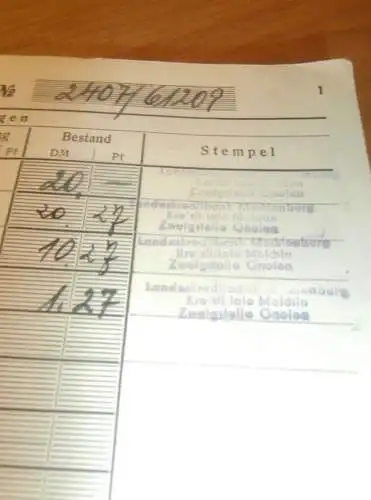 № 2407/61209 1
gen
Bestand Stempel
Pf DM Pf
20. —
Zweigstelle Gnoien
20. 27 Landeskreditbank Mecklenburg
Zweigstelle Gnoien
10. 27 Landeskreditbank Mecklenburg
Zweigstelle Gnoien
1. 27 Landeskreditbank Mecklenburg
Zweigstelle Gnoien